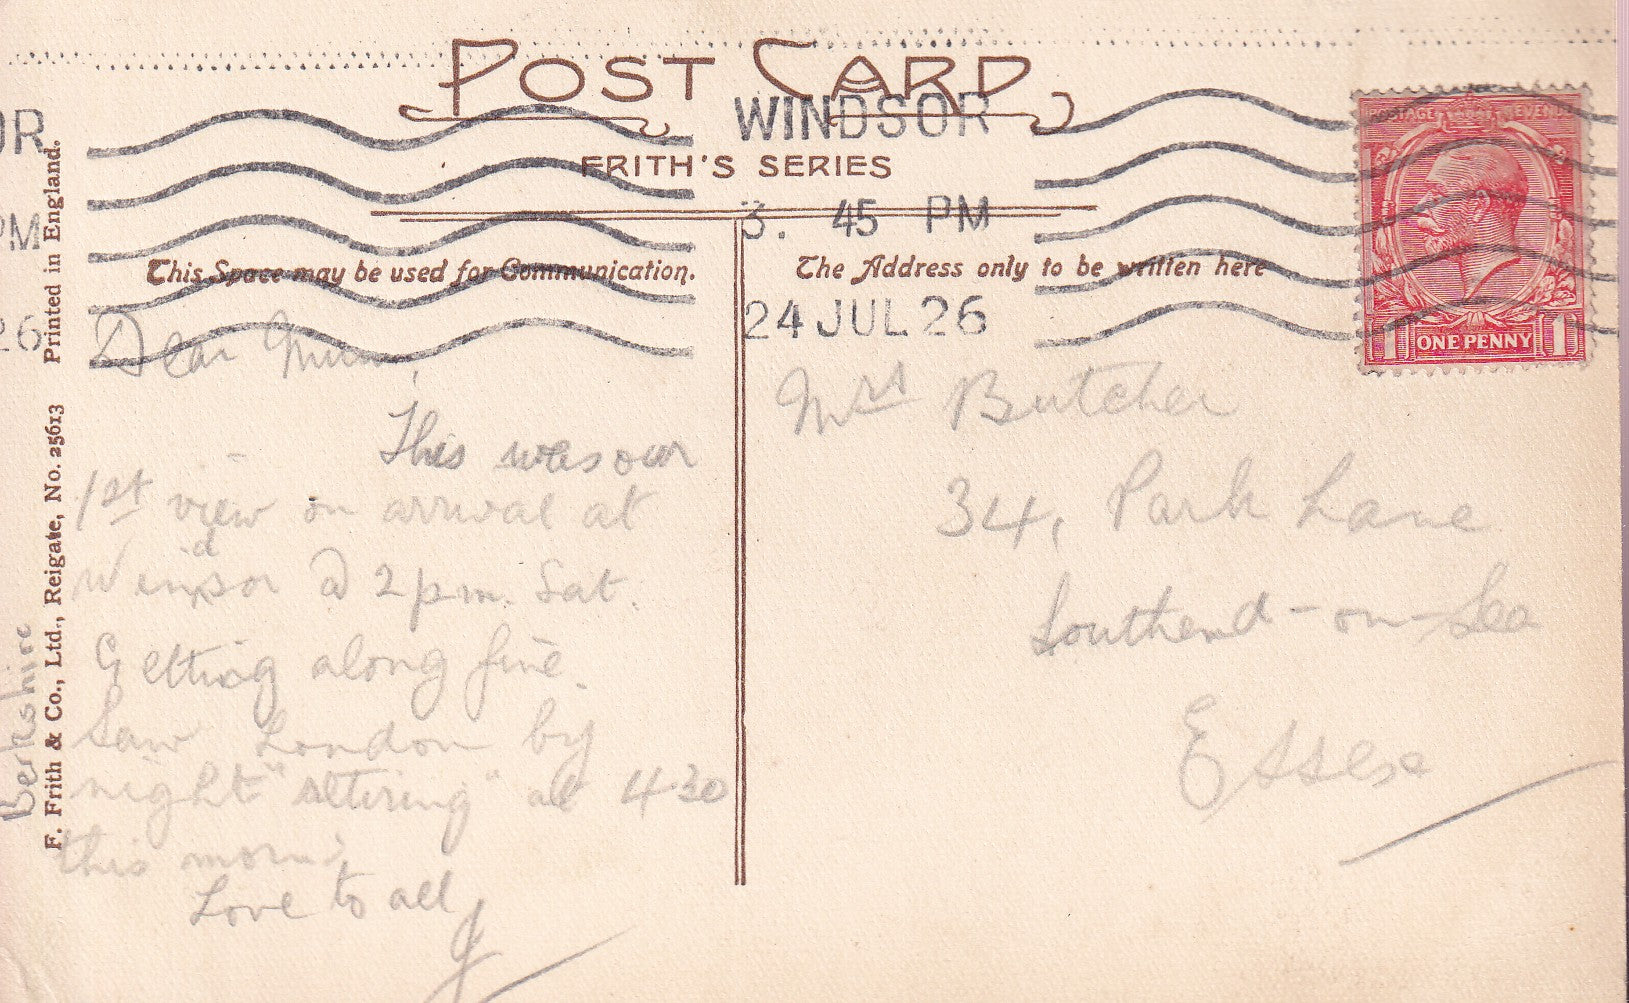 POST CARD
FRITH'S SERIES
WINDSOR
3. 45 PM
24 JUL 26
OR
PM
26
POSTAGE REVENUE
1 ONE PENNY 1
This Space may be used for Communication.
The Address only to be written here
Printed in England.
F. Frith & Co., Ltd., Reigate, No. 25613
Berkshire
Dear Mum,
This was our
1st view on arrival at
Winsdor @ 2 pm. Sat.
Getting along fine.
Saw London by
night "retiring" at 4-30
this morn:
Love to all
J
Mrs Butcher
34, Park Lane
Southend-on-Sea
Essex